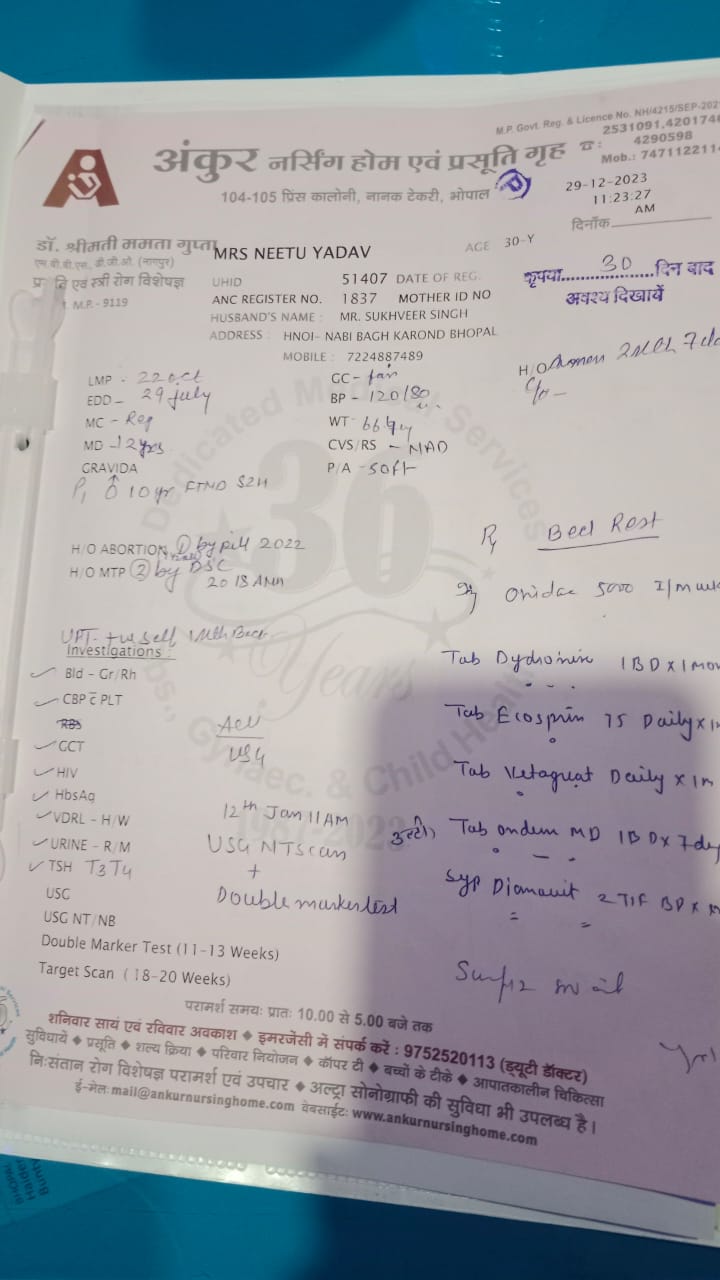 M.P. Govt. Reg. & Licence No. NH/4215/SEP-2021
2531091,4201748
4290598
Mob.: 7471122114
अंकुर नर्सिंग होम एवं प्रसूति गृह
104-105 प्रिंस कालोनी, नानक टेकरी, भोपाल
29-12-2023
11:23:27
AM
दिनाँक
डॉ. श्रीमती ममता गुप्ता
एम.बी.बी.एस., डी.जी.ओ. (नागपुर)
एवं स्त्री रोग विशेषज्ञ
M.P. - 9119
MRS NEETU YADAV
AGE 30-Y
UHID 51407 DATE OF REG.
ANC REGISTER NO. 1837 MOTHER ID NO
HUSBAND'S NAME : MR. SUKHVEER SINGH
ADDRESS : HNOI- NABI BAGH KAROND BHOPAL
MOBILE : 7224887489
कृपया 30 दिन बाद
अवश्य दिखायें
H/O 2 7
C/o -
LMP - 22 oct
EDD - 29 july
MC - Reg
MD - 12 yrs
GRAVIDA
P1 10 yr FTND
GC - fair
BP - 120/80
WT - 66 kg
CVS/RS - NAD
P/A - soft
H/O ABORTION 1 by pill 2022
H/O MTP 2 by
2018
UPT - +ve self
Investigations :
Bld - Gr/Rh
CBP c̄ PLT
RBS
GCT
HIV
HbsAg
VDRL - H/W
URINE - R/M
TSH T3 T4
USG
USG NT/NB
Double Marker Test (11-13 Weeks)
Target Scan ( 18-20 Weeks)
USG
12th Jan 11 AM
USG NT scan
+
Double marker test
Rx Bed Rest
5000 I/M
Tab 1 BD x 1
Tab Ecosprin 75 Daily x 1
Tab Daily x 1
उल्टी Tab ondem MD 1 BD x 7
Syp 2 BD x
Dedicated Medical Services
36
Years
Obs., Gynaec. & Child Health
1987-2023
परामर्श समय: प्रातः 10.00 से 5.00 बजे तक
शनिवार सायं एवं रविवार अवकाश ◆ इमरजेंसी में संपर्क करें : 9752520113 (ड्यूटी डॉक्टर)
सुविधायें ◆ प्रसूति ◆ शल्य क्रिया ◆ परिवार नियोजन ◆ कॉपर टी ◆ बच्चों के टीके ◆ आपातकालीन चिकित्सा
निःसंतान रोग विशेषज्ञ परामर्श एवं उपचार ◆ अल्ट्रा सोनोग्राफी की सुविधा भी उपलब्ध है।
ई-मेल: mail@ankurnursinghome.com वेबसाईट: www.ankurnursinghome.com